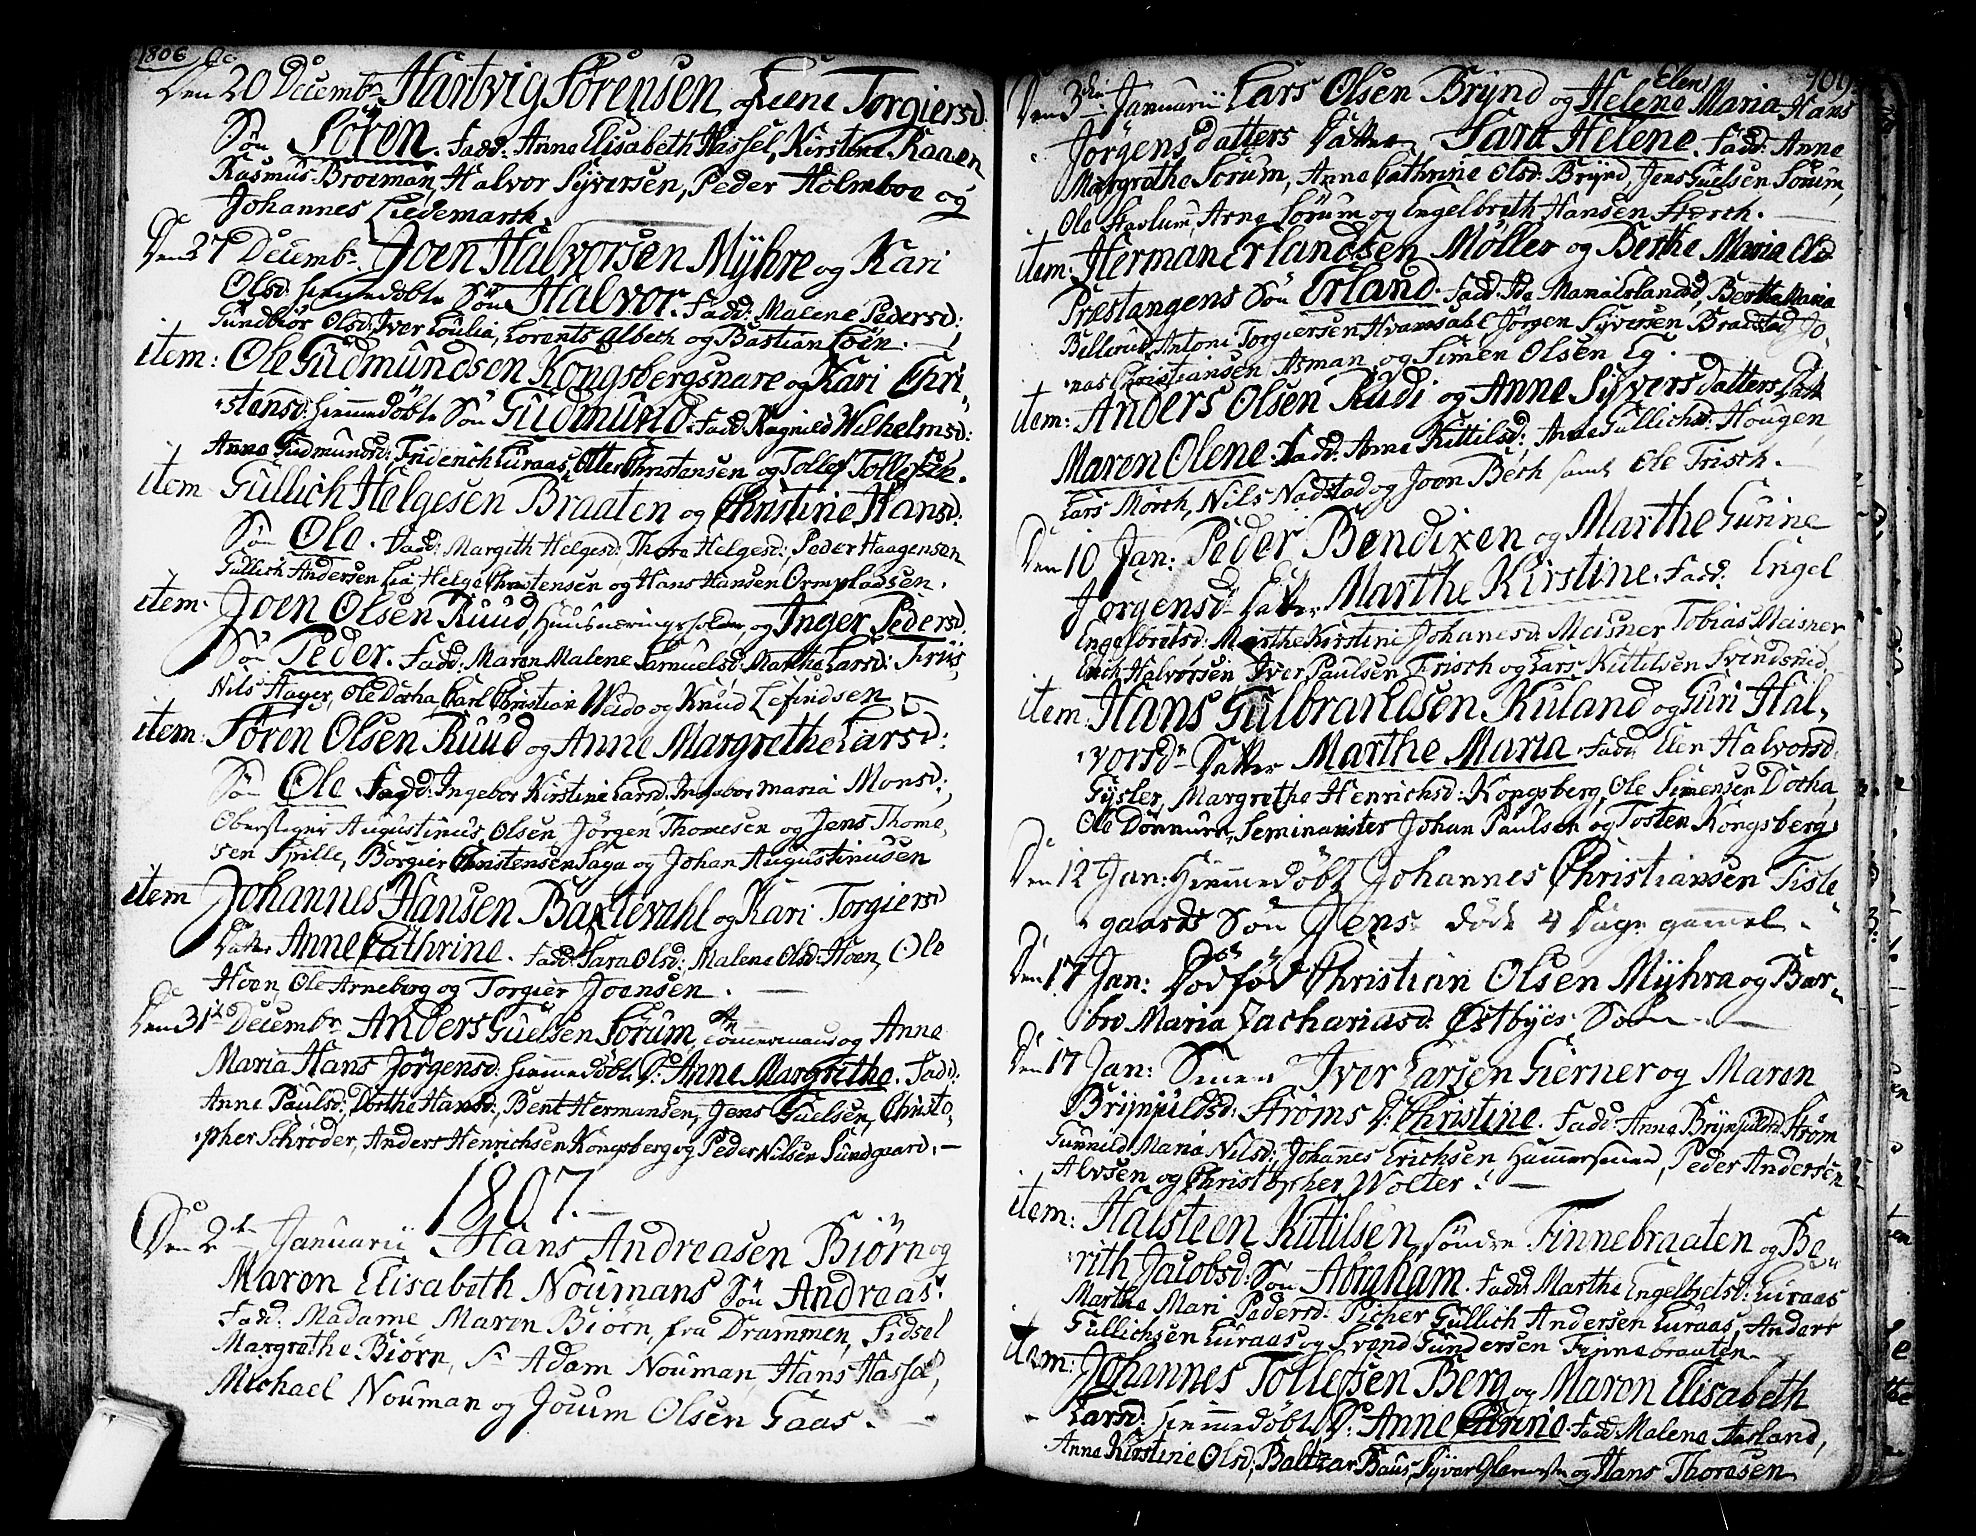 1806
Den 20 Decembr Hartvig Sörensen, og Lene Torgiersd:
Sön Sören. Fadd: Anne Elisabeth Hassel, Kirstine Kaaen
Rasmus Broeman, Halvor Syversen, Peder Holmboe og
Johannes Liedemark.
Den 27 Decembr. Joen Halvorsen Mÿhre og Kari
Olsd: hiemmedöbte Sön Halvor. Fadd: Malene Pedersd:
Gundbiör Olsd: Iver Loulia, Lorents Albech og Bastian Löen. —
item: Ole Gudmundsen Kongsbergsnare og Kari Chri-
stensd: hiemmedöbte Sön Gudmund. Fadd: Ragnild Wilhelmsd:
Anne Gudmundsd: Friderich Luraas, Otter Christensen og Tollef Tollefsen.
item Gullich Helgesen Braaten og Christine Hansd:
Sön Ole. Fadd: Margith Helgesd: Thore Helgesd: Peder Haagensen
Gullich Andersen Lia Helge Christensen og Hans Hansen Ormpladsen.
item. Joen Olsen Ruud, Huusnæringsholder, og Inger Pedersd.
Sön Peder. Fadd: Maren Malene Samuelsd: Marthe Larsd: Friis,
Nils Hager, Ole Dotha, Carl Christian Weido og Knud Lefindsen
item: Sören Olsen Ruud og Anne Margrethe Larsd:
Sön Ole Fadd: Ingebor Kirstine Larsd: Ingebor Maria Monsd:,
Oberstegier Augustinus Olsen Jörgen Thomesen og Jens Thome-
sen Spille, Börgier Christensen Saga og Johan Augustinusen
item Johannes Hansen Baxtevahl og Kari Torgiersd
Datter Anne Cathrine. Fadd: Sara Olsd: Malene Olsd: Hoen, Ole
Hoen, Ole Arneberg og Torgier Joensen. —
Den 31te Decembr Anders Guelsen Sorum, og Anne
Maria Hans Jörgensd: hiemmedöbt D: Anne Margrethe. Fadd:
Anne Paulsd: Dorthe Hansd:, Bent Hermansen, Jens Guelsen, Christo-
pher Schröder, Anders Henrichsen Kongsberg og Peder Nilsen Sundgaard. —
1807. —
Den 2den Januarii Hans Andreasen Biörn og
Maren Elisabeth Noumans Sön Andreas.
Fadd: Madame Maren Biörn, fra Drammen, Sidsel
Margrethe Biörn, Adam Nouman, Hans Hassel,
Michael Nouman og Jouum Olsen Gaas. —
109
Den 3die Januarii Lars Olsen Brÿnd og Helene Elen Maria Hans
Jörgensdatters Datter, Sara Helene. Fadd: Anne
Margrethe Sorum, Anne Cathrine Olsd: Brÿnd, Jens Guelsen Sorum,
Ole Haslum, Arne Sörum og Engelbreth Hansen Storch. —
item: Herman Erlandsen Möller og Berthe Maria Olsd
Præstangens Sön Erland. Fadd: Ida Maria Erlandsd, Berthe Maria
Bellerud, Antoni Torgiersen Hvamsahl Jörgen Syversen Bradstad Jo-
nas Christiansen Asman og Simen Olsen Eg.
item: Anders Olsen Rudi og Anne Sÿversdatters Datt
Maren Olene. Fadd: Anne Kittilsd: Anne Gullichsd: Hougen,
Lars Mörch, Nils Nadstad og Joen Bech samt Ole Frisch. —
Den 10 Jan: Peder Bendixen og Marthe Gurine
Jörgensd: Datter Marthe Kirstine. Fadd: Engel
Engelbretsd: Marthe Kirstine Johanesd: Meisner Tobias Meisner
Erich Halvorsen Iver Paulsen Frisch og Lars Kittilsen Svindsrud,
item Hans Gulbrandsen Ruland og Guri Hal-
vorsdr Datter Marthe Maria. Fadd: Elen Halvorsd
Gysler, Margrethe Henrichsd: Kongsberg, Ole Simensen Dotha,
Ole Dönnum, Seminarister Johan Paulsen og Tosten Kongsberg
Den 12 Jan: Hiemmedöbt Johannes Christiansen Tisle-
gaards Sön Jens döde 4 Dage gammel.
Den 17 Jan: Dödföd Christian Olsen Mÿhra og Bar-
bro Maria Zachariasd: Östbÿes Sön. —
Den 17 Jan: Smen Iver Larsen Gierner og Maren
Brijnjuldsd: Ströms D: Christine. Fadd: Anne Brijnjuldsd Ström
Gunnild Maria Nilsd: Johannes Erichsen Hammersmed, Peder Andersen
Alvsen og Christopher Wolter. —
item: Halsteen Kittilsen, söndre Finnebraaten og Be-
rith Jacobsd: Sön Abraham. Fadd: Marthe Engelbretsd: Luraas
Marthe Mari Pedersd: Picher Gullich Andersen Luraas, Anders
Gullichsen Luraas og Svend Gundersen Finnebraaten
item: Johannes Tollefsen Berg og Maren Elisabeth
Larsd: hiemmedöbt D: Anne Cathrine. Fadd: Malene Aasland,
Anne Kirstine Olsd: Baltzar Baus, Syver og Hans Thoresen